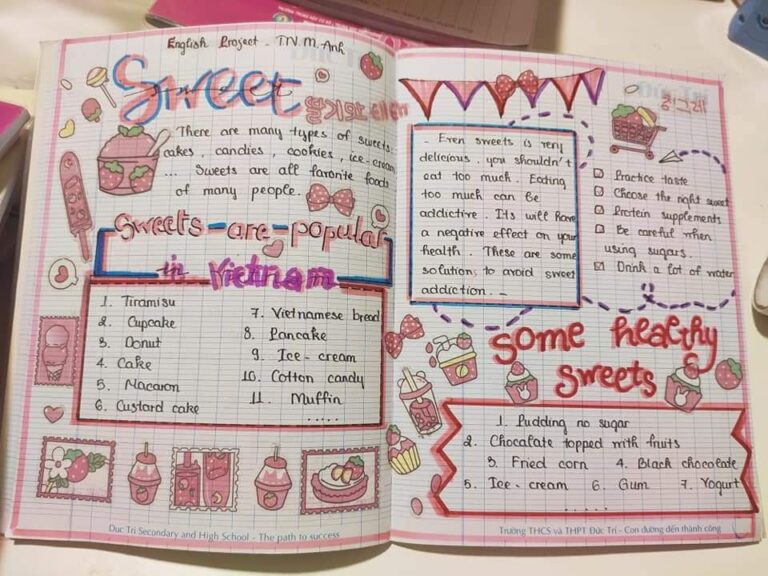 English Project - TN.M.Anh
Sweet
There are many types of sweets:
cakes, candies, cookies, ice-cream,
... Sweets are all favorite foods
of many people.
Sweets-are-popular
in Vietnam
1. Tiramisu
2. Cupcake
3. Donut
4. Cake
5. Macaron
6. Custard cake
7. Vietnamese bread
8. Pancake
9. Ice-cream
10. Cotton candy
11. Muffin
.....
Duc Tri Secondary and High School - The path to success
- Even sweets is very
delicious, you shouldn't
eat too much. Eating
too much can be
addictive. Its will have
a negative effect on your
health. These are some
solutions to avoid sweet
addiction. -
Practice taste
Choose the right sweet
Protein supplements
Be careful when
using sugars.
Drink a lot of water
Some healthy
sweets
1. Pudding no sugar
2. Chocolate topped with fruits
3. Fried corn 4. Black chocolate
5. Ice-cream 6. Gum 7. Yogurt
.....
Trường THCS và THPT Đức Trí - Con đường đến thành công